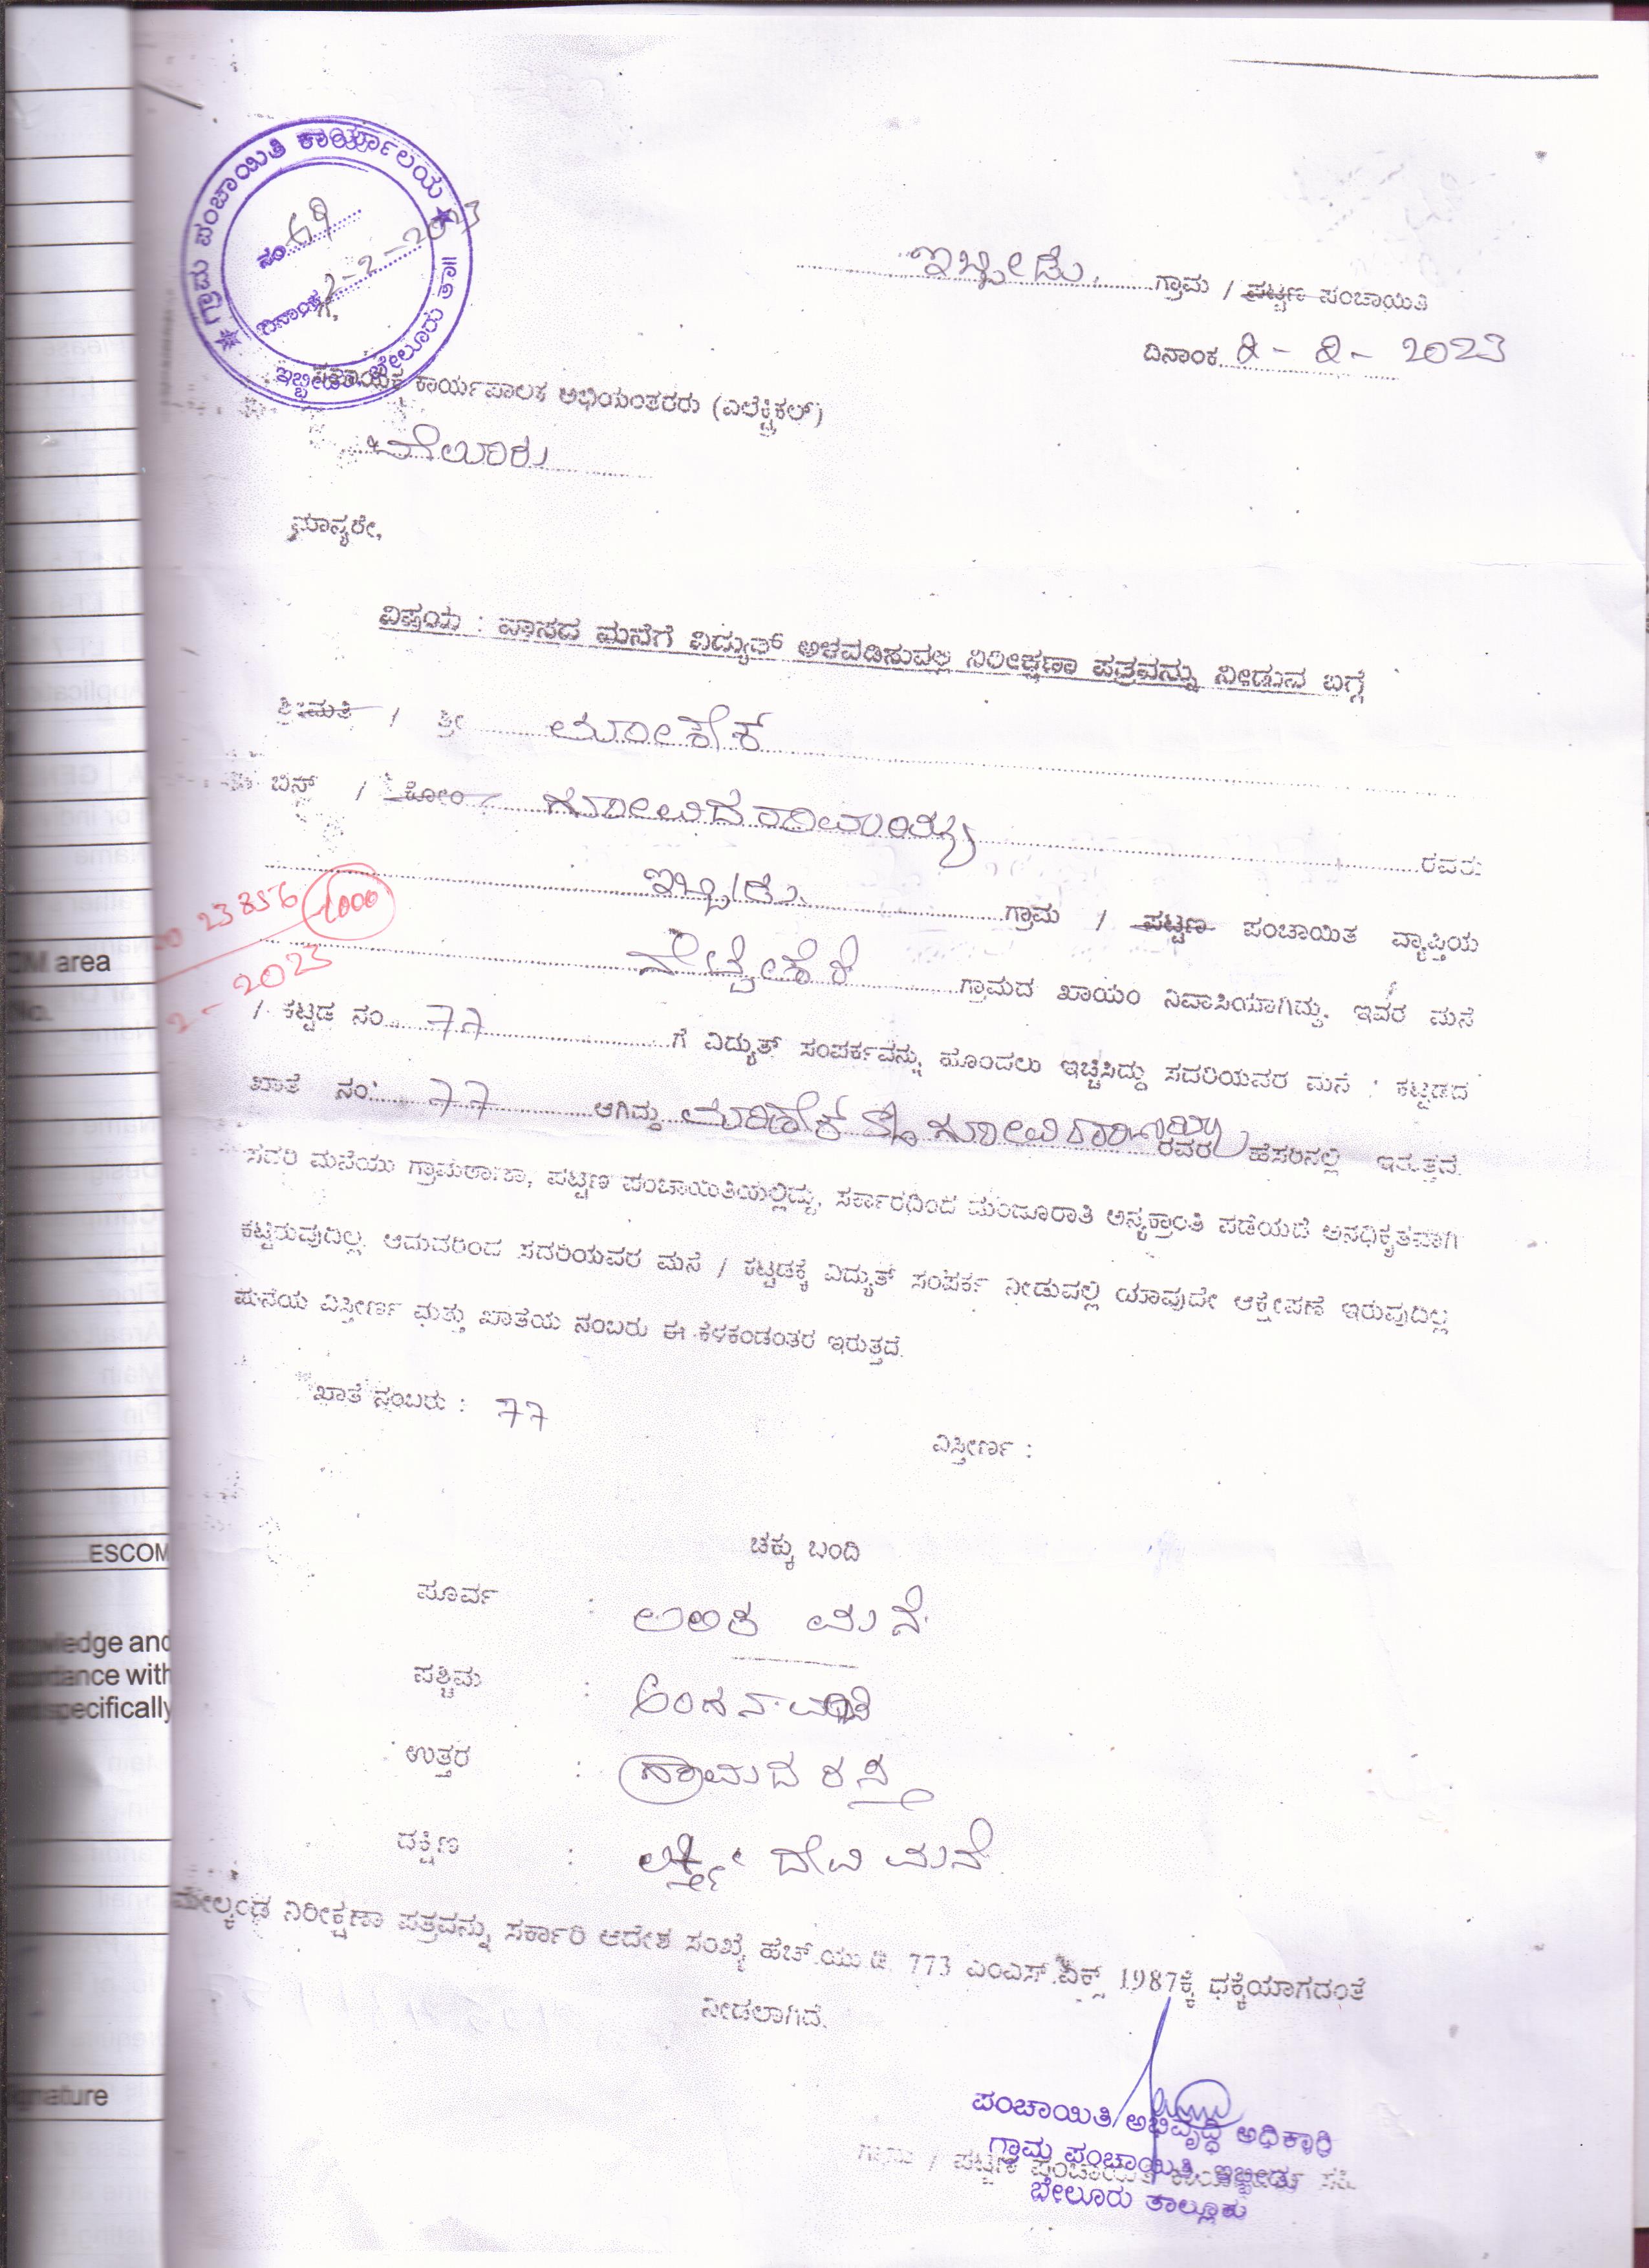 ಗ್ರಾಮ ಪಂಚಾಯಿತಿ ಕಾರ್ಯಾಲಯ
ನಂ. 69
ದಿನಾಂಕ 2-2-2023
ಇಬ್ಬೀಡು ಬೇಲೂರು ತಾ॥
ಇಬ್ಬೀಡು. ಗ್ರಾಮ / ಪಟ್ಟಣ ಪಂಚಾಯಿತಿ
ದಿನಾಂಕ 2 - 2 - 2023
ಕಾರ್ಯಪಾಲಕ ಅಭಿಯಂತರರು (ಎಲೆಕ್ಟ್ರಿಕಲ್)
ಬೇಲೂರು
ಮಾನ್ಯರೇ,
ವಿಷಯ : ವಾಸದ ಮನೆಗೆ ವಿದ್ಯುತ್ ಅಳವಡಿಸುವಲ್ಲಿ ನಿರೀಕ್ಷಣಾ ಪತ್ರವನ್ನು ನೀಡುವ ಬಗ್ಗೆ
ಶ್ರೀಮತಿ / ಶ್ರೀ
ಬಿನ್ / ಕೋಂ ರವರು
ಇಬ್ಬೀಡು ಗ್ರಾಮ / ಪಟ್ಟಣ ಪಂಚಾಯಿತ ವ್ಯಾಪ್ತಿಯ
23856 1000
2-2023
ಗ್ರಾಮದ ಖಾಯಂ ನಿವಾಸಿಯಾಗಿದ್ದು, ಇವರ ಮನೆ
/ ಕಟ್ಟಡ ನಂ. 77 ಗೆ ವಿದ್ಯುತ್ ಸಂಪರ್ಕವನ್ನು ಹೊಂದಲು ಇಚ್ಚಿಸಿದ್ದು ಸದರಿಯವರ ಮನೆ : ಕಟ್ಟಡದ
ಖಾತೆ ನಂ. 77 ಆಗಿದ್ದು ರವರ ಹೆಸರಿನಲ್ಲಿ ಇರುತ್ತದೆ.
ಸದರಿ ಮನೆಯು ಗ್ರಾಮಠಾಣಾ, ಪಟ್ಟಣ ಪಂಚಾಯಿತಿಯಲ್ಲಿದ್ದು, ಸರ್ಕಾರದಿಂದ ಮಂಜೂರಾತಿ ಅನ್ಯಕ್ರಾಂತಿ ಪಡೆಯದೆ ಅನಧಿಕೃತವಾಗಿ
ಕಟ್ಟಿರುವುದಿಲ್ಲ. ಆದುದರಿಂದ ಸದರಿಯವರ ಮನೆ / ಕಟ್ಟಡಕ್ಕೆ ವಿದ್ಯುತ್ ಸಂಪರ್ಕ ನೀಡುವಲ್ಲಿ ಯಾವುದೇ ಆಕ್ಷೇಪಣೆ ಇರುವುದಿಲ್ಲ
ಮನೆಯ ವಿಸ್ತೀರ್ಣ ಮತ್ತು ಖಾತೆಯ ನಂಬರು ಈ ಕೆಳಕಂಡಂತರ ಇರುತ್ತದೆ.
ಖಾತೆ ನಂಬರು : 77
ವಿಸ್ತೀರ್ಣ :
ಚಕ್ಕು ಬಂದಿ
ಪೂರ್ವ : ಮನೆ
ಪಶ್ಚಿಮ : ಅಂಗನವಾಡಿ
ಉತ್ತರ : ಗ್ರಾಮದ ರಸ್ತೆ
ದಕ್ಷಿಣ : ದೇವಿ ಮನೆ
ಮೇಲ್ಕಂಡ ನಿರೀಕ್ಷಣಾ ಪತ್ರವನ್ನು ಸರ್ಕಾರಿ ಆದೇಶ ಸಂಖ್ಯೆ ಹೆಚ್.ಯು.ಡಿ. 773 ಎಂಎಸ್.ಎಕ್ಸ್ 1987ಕ್ಕೆ ಧಕ್ಕೆಯಾಗದಂತೆ
ನೀಡಲಾಗಿದೆ.
ಪಂಚಾಯಿತಿ ಅಭಿವೃದ್ಧಿ ಅಧಿಕಾರಿ
ಗ್ರಾಮ ಪಂಚಾಯಿತಿ, ಇಬ್ಬೀಡು
ಬೇಲೂರು ತಾಲ್ಲೂಕು
area
No.
ESCOM
and
with
specifically